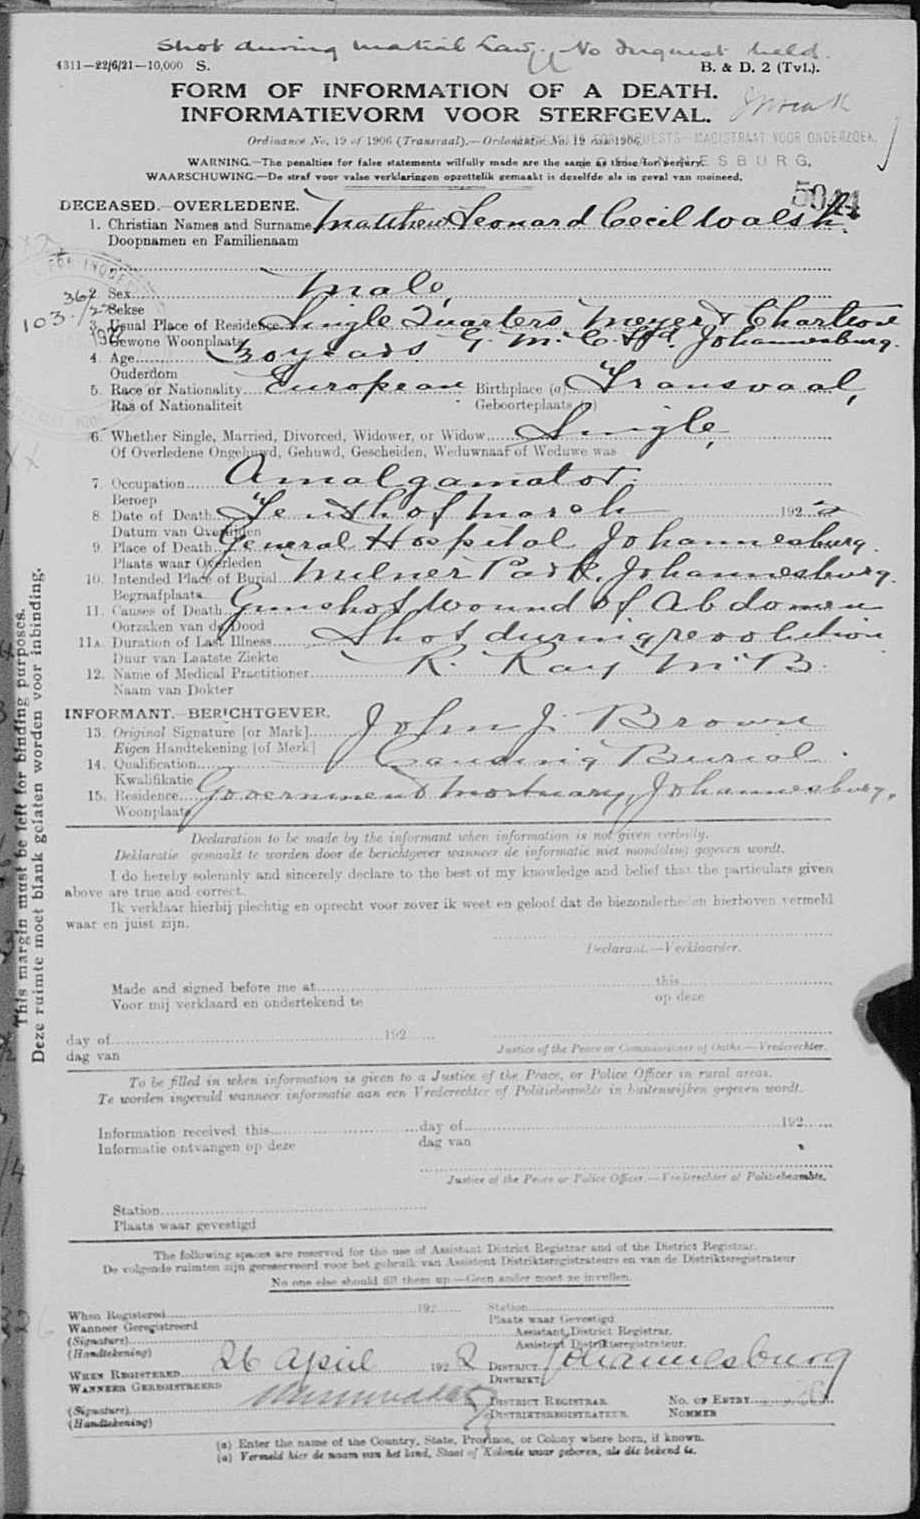 Shot during Matial Law. No Inquest held.
4311—22/6/21—10,000 S. B. & D. 2 (Tvl.).
FORM OF INFORMATION OF A DEATH.
INFORMATIEVORM VOOR STERFGEVAL.
Ordinance No. 19 of 1906 (Transvaal).—Ordonantie No. 19 van 1906.
MAGISTRAAT VOOR ONDERZOEK.
WARNING.—The penalties for false statements wilfully made are the same as those for perjury.
WAARSCHUWING.—De straf voor valse verklaringen opzettelik gemaakt is dezelfde als in geval van meineed.
DECEASED.—OVERLEDENE.
1. Christian Names and Surname Matthew Leonard Cecil Walsh.
Doopnamen en Familienaam
2. Sex Male,
Sekse
103. 362/22
3. Usual Place of Residence Single Quarters Meyer & Charlton
Gewone Woonplaats G. M. C. Ltd. Johannesburg.
4. Age 30 years
Ouderdom
5. Race or Nationality European Birthplace (a) Transvaal,
Ras of Nationaliteit Geboorteplaats (a)
6. Whether Single, Married, Divorced, Widower, or Widow Single,
Of Overledene Ongehuwd, Gehuwd, Gescheiden, Weduwnaar of Weduwe was
7. Occupation Amalgamator.
Beroep
8. Date of Death Tenth of March 1922
Datum van Overlijden
9. Place of Death General Hospital Johannesburg.
Plaats waar Overleden
10. Intended Place of Burial Milner Park, Johannesburg.
Begraafplaats
11. Causes of Death Gunshot Wound of Abdomen
Oorzaken van de Dood
11A. Duration of Last Illness Shot during revolution
Duur van Laatste Ziekte
12. Name of Medical Practitioner R. Kay M.B.
Naam van Dokter
INFORMANT.—BERICHTGEVER.
13. Original Signature [or Mark] John J. Brown
Eigen Handtekening [of Merk]
14. Qualification Causing Burial.
Kwalifikatie
15. Residence Government Mortuary, Johannesburg.
Woonplaats
Declaration to be made by the informant when information is not given verbally.
Deklaratie gemaakt te worden door de berichtgever wanneer de informatie niet mondeling gegeven wordt.
I do hereby solemnly and sincerely declare to the best of my knowledge and belief that the particulars given
above are true and correct.
Ik verklaar hierbij plechtig en oprecht voor zover ik weet en geloof dat de biezonderheden hierboven vermeld
waar en juist zijn.
Declarant.—Verklaarder.
Made and signed before me at this
Voor mij verklaard en ondertekend te op deze
day of 192
dag van Justice of the Peace or Commissioner of Oaths.—Vrederechter.
To be filled in when information is given to a Justice of the Peace, or Police Officer in rural areas.
Te worden ingevuld wanneer informatie aan een Vrederechter of Politiebeambte in buitenwijken gegeven wordt.
Information received this day of 192
Informatie ontvangen op deze dag van
Justice of the Peace or Police Officer.—Vrederechter of Politiebeambte.
Station
Plaats waar gevestigd
The following spaces are reserved for the use of Assistant District Registrar and of the District Registrar.
De volgende ruimten zijn gereserveerd voor het gebruik van Assistent Distriktsregistrateurs en van de Distriktsregistrateur
No one else should fill them up.—Geen ander moet ze invullen.
When Registered 192 Station
Wanneer Geregistreerd Plaats waar Gevestigd
(Signature) Assistant District Registrar.
(Handtekening) Assistent Distriktsregistrateur.
WHEN REGISTERED 26 April 1922 DISTRICT Johannesburg
WANNEER GEREGISTREERD DISTRIKT
(Signature) DISTRICT REGISTRAR No. OF ENTRY
(Handtekening) DISTRIKTSREGISTRATEUR NOMMER
(a) Enter the name of the Country, State, Province, or Colony where born, if known.
(a) Vermeld hier de naam van het land, Staat of Kolonie waar geboren, als die bekend is.
This margin must be left for binding purposes.
Deze ruimte moet blank gelaten worden voor inbinding.